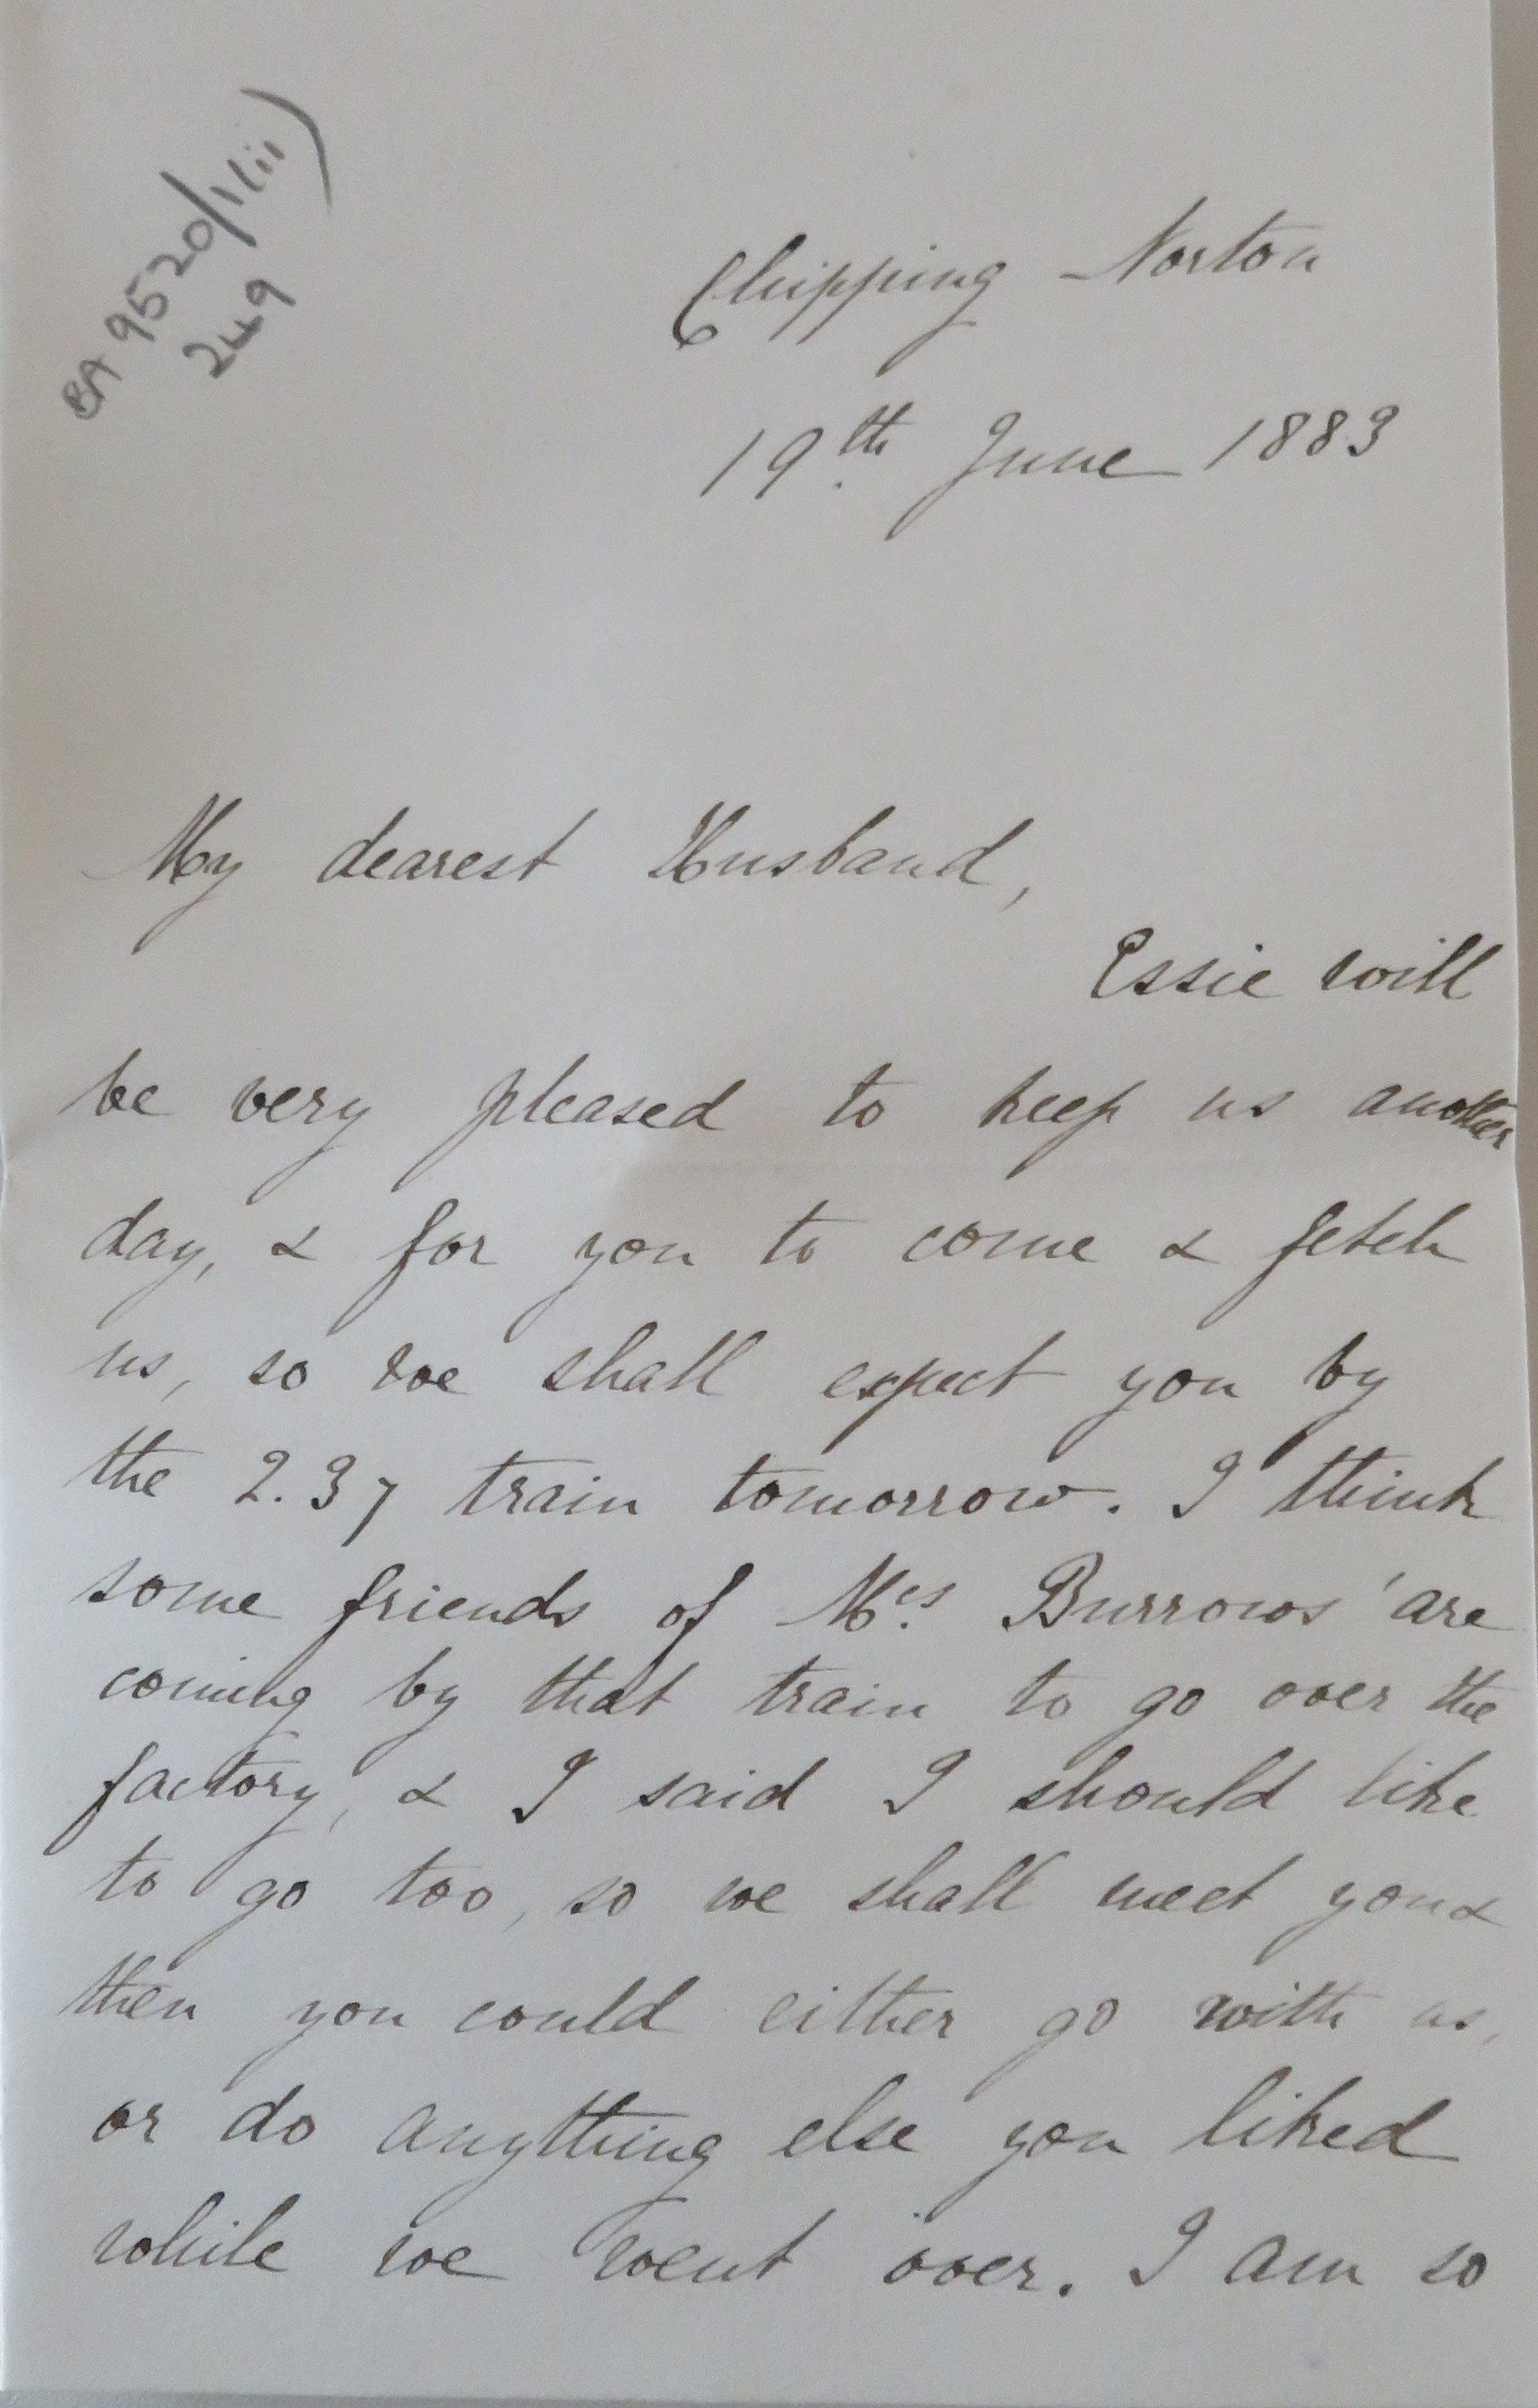 BA 9520/1(ii)
249
Chipping Norton
19th June 1883
My dearest Husband,
Essie will
be very pleased to keep us another
day, & for you to come & fetch
us, so we shall expect you by
the 2.37 train tomorrow. I think
some friends of Mrs. Burrows' are
coming by that train to go over the
factory, & I said I should like
to go too, so we shall meet you &
then you could either go with us,
or do anything else you liked
while we went over. I am so